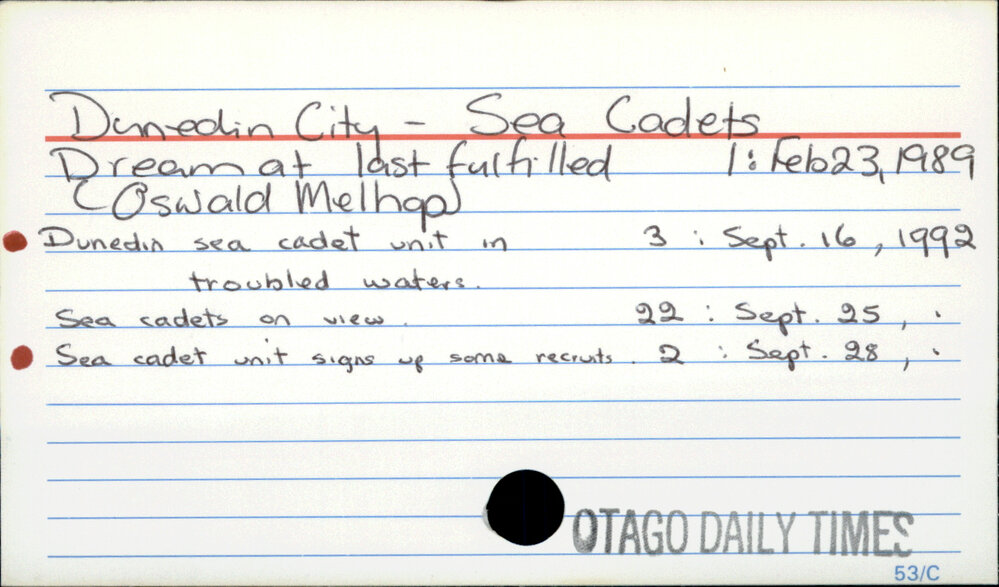 Dunedin City - Sea Cadets
Dream at last fulfilled 1: Feb 23, 1989
(Oswald Melhop)
Dunedin sea cadet unit in 3 : Sept. 16, 1992
troubled waters.
Sea cadets on view. 22 : Sept. 25, .
Sea cadet unit signs up some recruits. 2 : Sept. 28, .
OTAGO DAILY TIMES
53/C